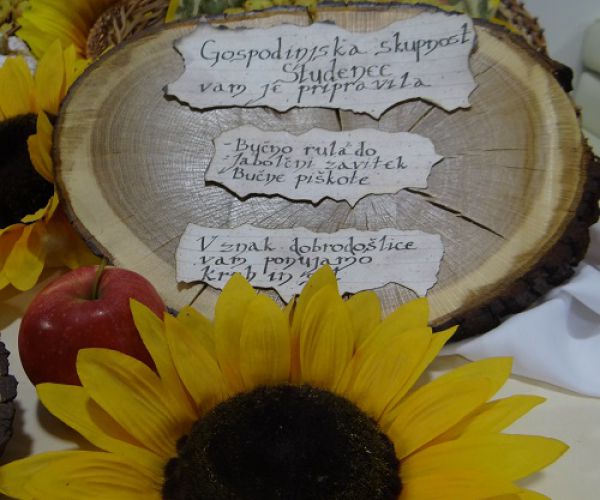 Gospodinjska skupnost
Studenec
vam je pripravila
- Bučno rulado
- Jabolčni zavitek
Bučne piškote
V znak dobrodošlice
vam ponujamo
kruh in